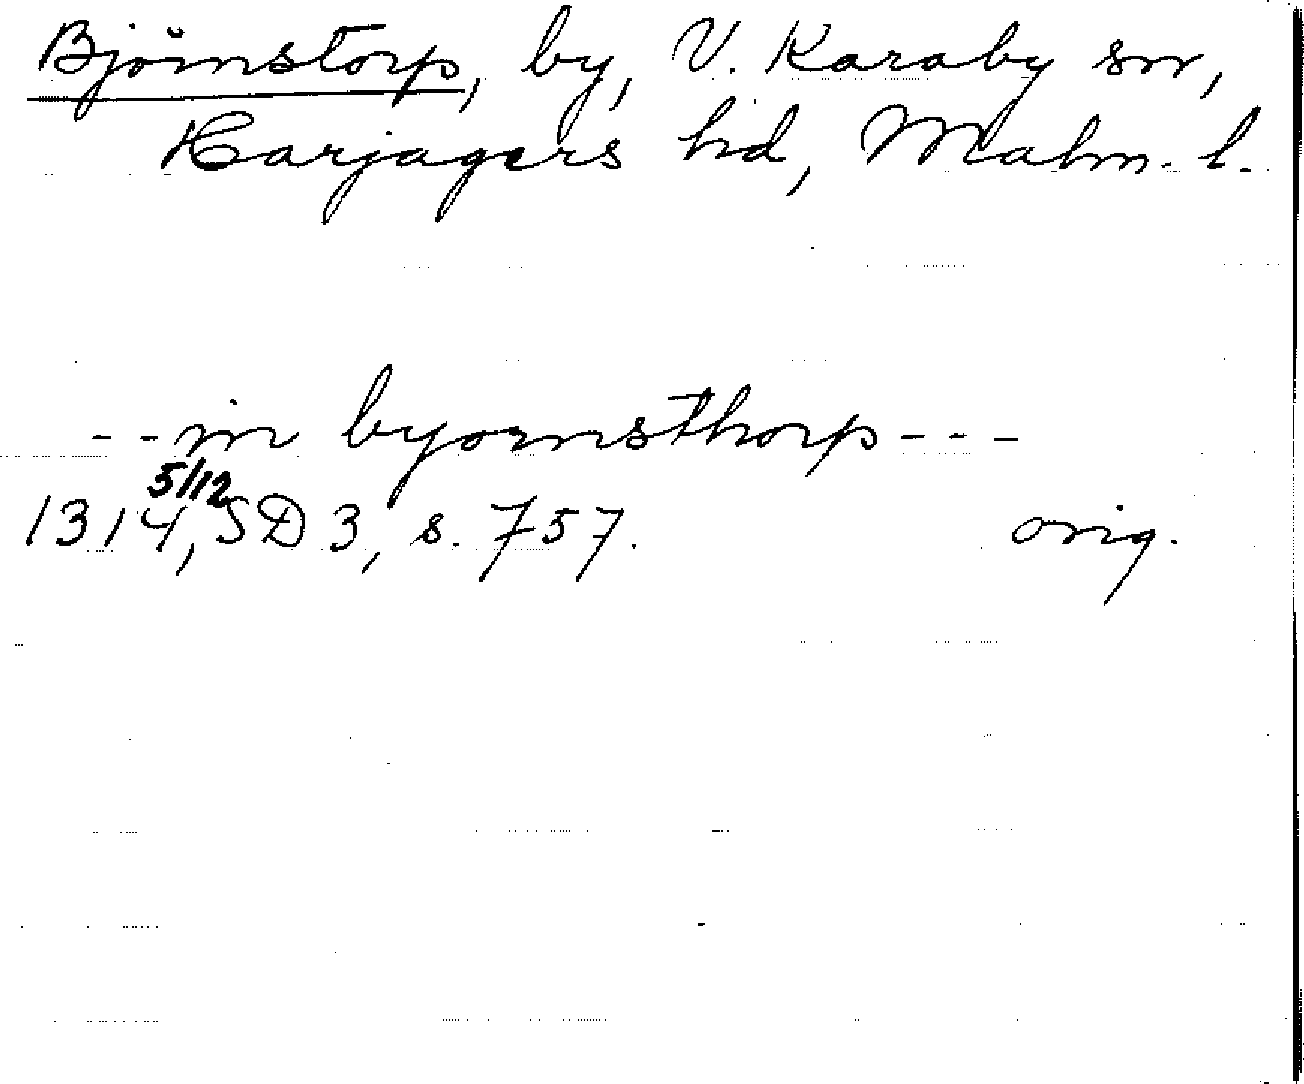 Björnstorp, by, V. Karaby sn,
Harjagers hd, Malm. l.
- - in byornsthorp - - -
5/12
1314, SD 3, s. 757. orig.